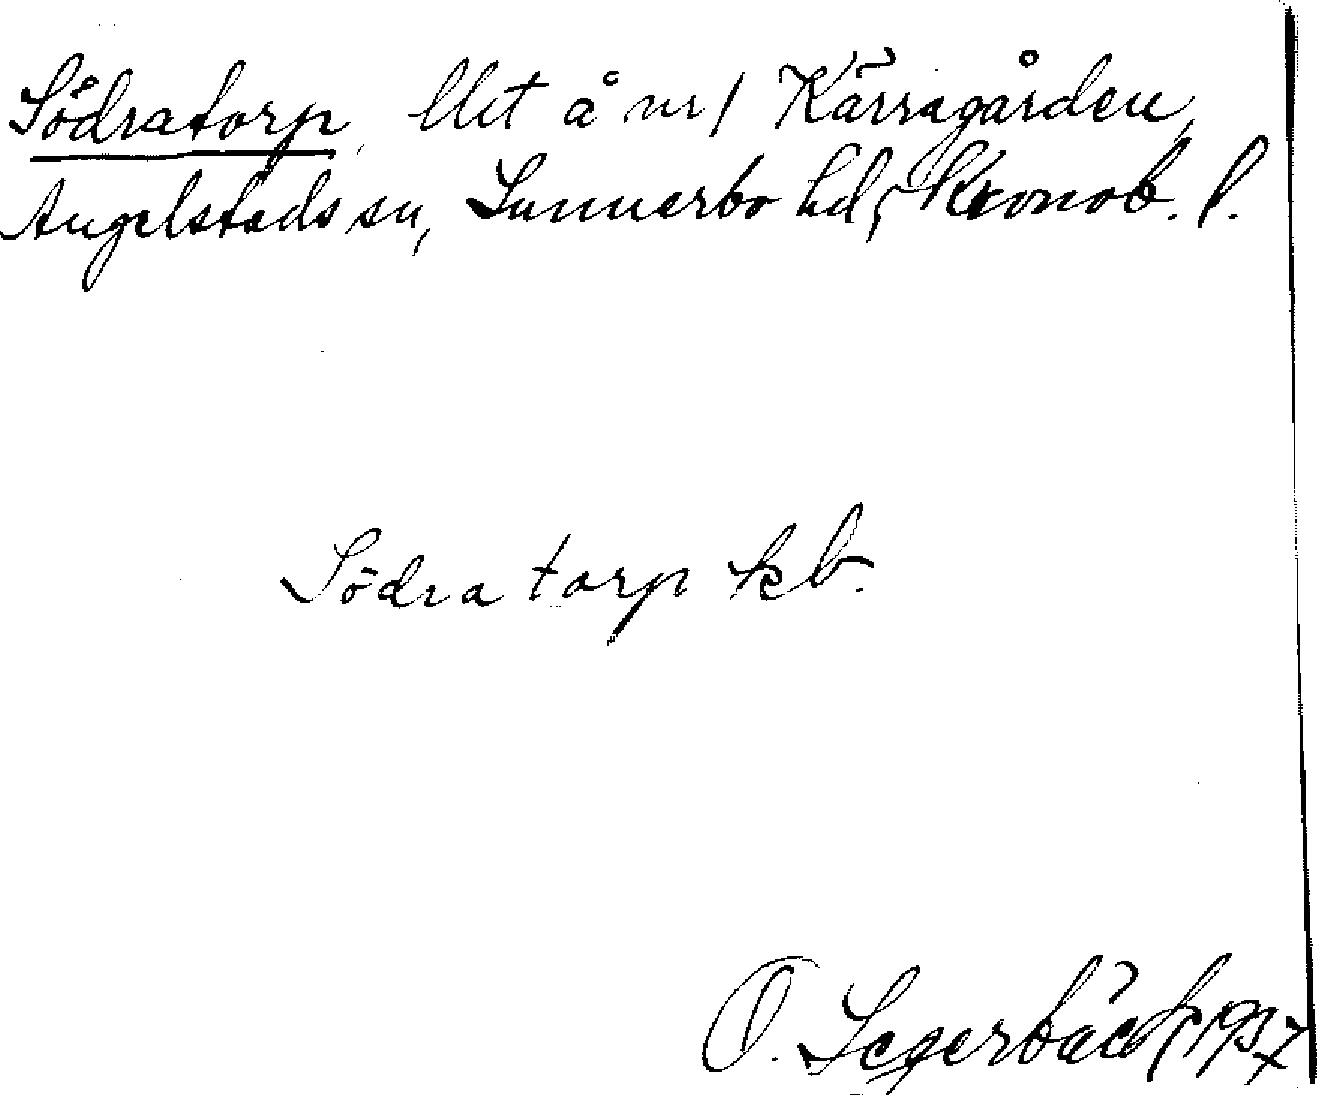 Södratorp, lht å nr 1 Kärragården,
Angelstads sn, Sunnerbo hd, Kronob. l.
Södratorp kb.
O. Segerbäck 1937